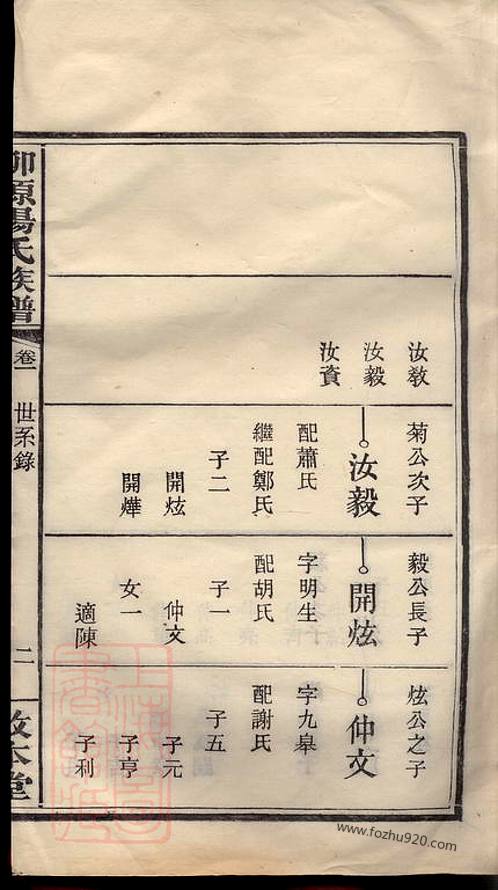 汝敎
汝毅
汝資
菊公次子
汝毅
配蕭氏
繼配鄭氏
子二
開炫
開燁
毅公長子
開炫
字明生
配胡氏
子一
仲文
女一
適陳
炫公之子
仲文
字九皋
配謝氏
子五
子元
子亨
子利
原楊氏族譜
卷一
世系錄
二
www.fozhu920.com